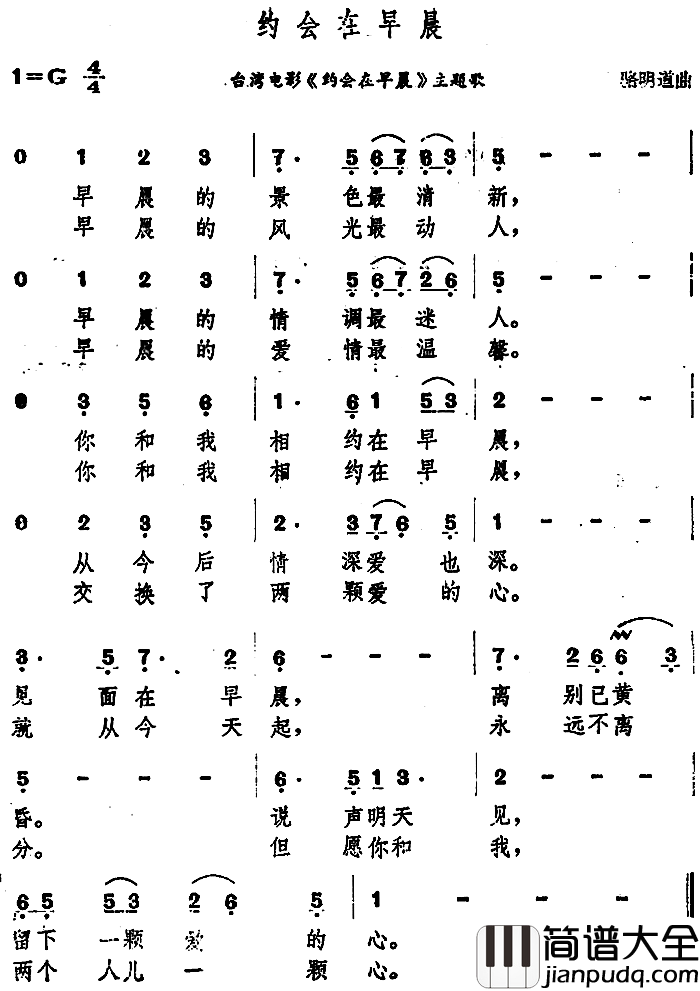 约会在早晨
1=G 4/4 台湾电影《约会在早晨》主题歌 骆明道曲
0 1 2 3 | 7· 5 6 7 6 3 | 5 - - - |
早晨的景色最清新,
早晨的风光最动人,
0 1 2 3 | 7· 5 6 7 2 6 | 5 - - - |
早晨的情调最迷人。
早晨的爱情最温馨。
0 3 5 6 | 1· 6 1 5 3 | 2 - - - |
你和我相约在早晨,
你和我相约在早晨,
0 2 3 5 | 2· 3 7 6 5 | 1 - - - |
从今后情深爱也深。
交换了两颗爱的心。
3· 5 7· 2 | 6 - - - | 7· 2 6 6 3 |
见面在早晨,离别已黄
就从今天起,永远不离
5 - - - | 6· 5 1 3· | 2 - - - |
昏。说声明天见,
分。但愿你和我,
6 5 5 3 2 6 5 | 1 - - - ||
留下一颗爱的心。
两个人儿一颗心。
简谱大全
jianpudq.com